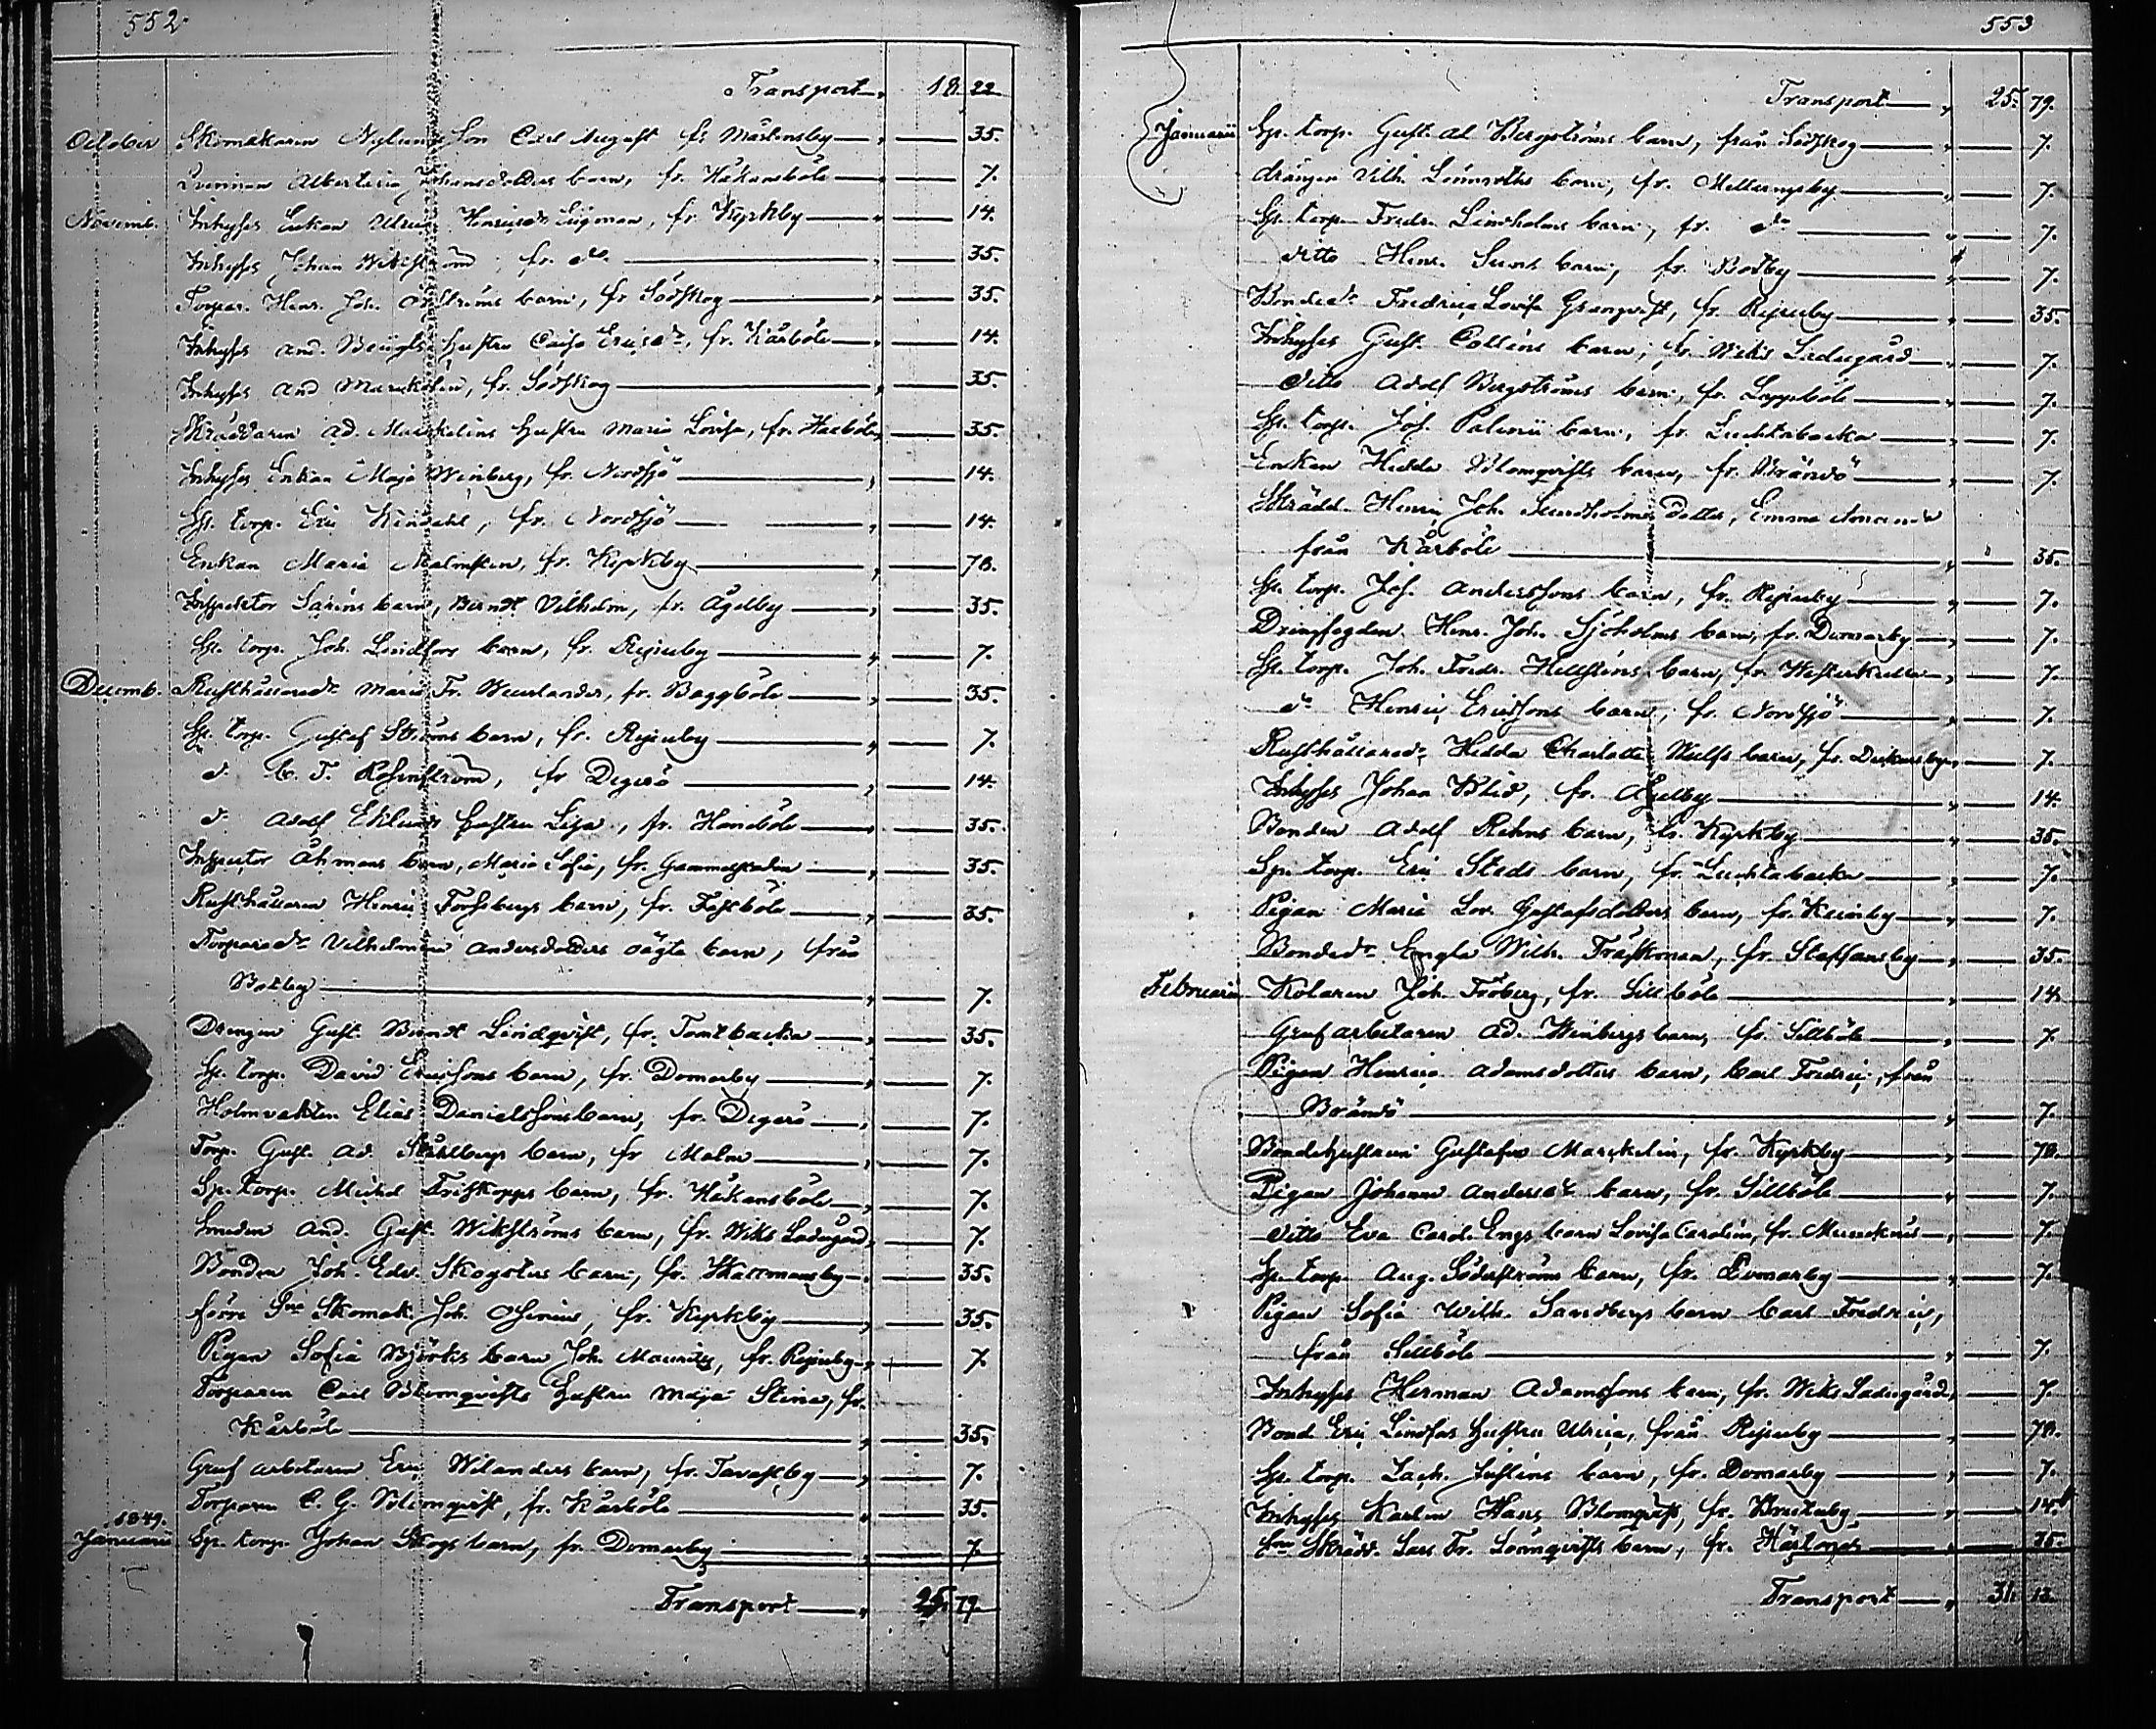 552.
Transport 18. 22
October Skomakaren Nylunds Son Carl August fr Mårtensby 35.
Qvinnan Albertina Johansdotters barn, fr. Håkansböle 7.
Novemb. Inhyses Enkan Ulrica Henricsdr Sigman, fr. Kyrkby 14.
Inhyses Johan Wikström, fr. do 35.
Torpar. Henr. Joh. Öströms barn, fr Sodskog 35.
Inhyses And. Bengts Hustru Caisa Ericsdr, fr. Kårböle 14.
Inhyses And Marckelin, fr. Sodskog 35.
Skräddaren Ad. Marckelins Hustru Maria Lovisa, fr. Haxböle 35.
Inhyses Enkan Maja Winberg, fr. Nordsjö 14.
Sp. torp. Eric Kindahl, fr. Nordsjö 14.
Enkan Maria Malmsten, fr. Kyrkby 70.
Inspektor Saxens barn, Berndt Vilhelm, fr. Ågelby 35.
Sp. torp. Joh. Lindfors barn, fr. Rejpelby 7.
Decemb. Rusthållaredr Maria Fr. Westerlander, fr. Baggböle 35.
Sp. torp. Gustaf Ströms barn, fr. Rejpelby 7.
do C. F. Rosenström, fr Degerö 14.
do Adolf Eklunds Hustru Lisa, fr. Haneböle 35.
Inspector Åhmans barn, Maria Sofia, fr. Gammelstaden 35.
Rusthållaren Henric Forsbergs barn, fr. Fastböle 35.
Torparedr Vilhelmina Andersdotters oägta barn, från
Botby 7.
Drengen Gust. Berndt Lindqvist, fr. Tomtbacka 35.
Sp. torp. David Ericssons barn, fr. Domarby 7.
Holmvakten Elias Danielssons barn, fr. Degerö 7.
Torp. Gust. Ad. Ståhlbergs barn, fr Malm 7.
Sp. torp. Michel Friskopps barn, fr. Håkansböle 7.
Smeden And. Gust. Wikströms barn, fr. Wiks Ladugård 7.
Bonden Joh. Edv. Skogsters barn, fr. Skattmansby 35.
förre Skomak. Joh. Osenius, fr. Kyrkby 35.
Pigan Sofia Björks barn Joh. Mauritz, fr. Rejpelby 7.
Torparen Carl Blomqvists Hustru Maja Stina, fr.
Kårböle 35.
Grufarbetaren Eric Wilanders barn, fr. Tavastby 7.
Torparen C. G. Blomqvist, fr. Kårböle 35.
1849.
Januarii Sp. torp. Johan Skogs barn, fr. Domarby 7.
Transport 25. 79.
553
Transport 25. 79.
Januarii Sp. torp. Gust. Ad Bergströms barn, från Sodskog 7.
drängen Vilh. Lönnroths barn, fr. Mellungsby 7.
Sp. torp. Fredr. Lindholms barn, fr. do 7.
ditto Henr. Sunds barn, fr. Botby 7.
Bondedr Fredrica Lovisa Granqvist, fr. Rejpelby 35.
Inhyses Gust. Collins barn, fr. Wiks Ladugård 7.
ditto Adolf Bergströms barn, fr. Lappböle 7.
Sp. torp. Joh. Palenii barn, fr. Luchtabacka 7.
Enkan Hedda Blomqvists barn, fr. Brändö 7.
Skrädd. Henric Joh. Sundholms Dotter, Emma Amanda
från Kårböle 35.
Sp. torp. Joh. Anderssons barn, fr. Rejpelby 7.
Drengfogden Henr. Joh. Sjöholms barn, fr. Domarby 7.
Sp. torp. Joh. Fredr. Hellstens barn, fr. Westerkulla 7.
do Henric Ericssons barn, fr. Nordsjö 7.
Rusthållaredr Hedda Charlotta Wulfs barn, fr. Dickursby 7.
Inhyses Johan Blid, fr. Ågelby 14.
Bonden Adolf Rehns barn, fr. Kyrkby 35.
Sp. torp. Eric Steds barn, fr. Luchtabacka 7.
Pigan Maria Lov. Gustafsdotters barn, fr. Keinby 7.
Bondedr Engla Wilh. Träskman, fr. Staffansby 35.
Februarii Kolaren Joh. Fröberg, fr. Sillböle 14
Grufarbetaren Ad. Winbergs barn, fr. Sillböle 7.
Pigan Henrica Adamsdotters barn, Carl Fredric, från
Brändö 7.
Bondehustrun Gustafva Marckelin, fr. Kyrkby 70.
Pigan Johanna Andersdr barn, fr. Sillböle 7.
ditto Eva Carol. Engs barn Lovisa Carolin, fr. Muncknäs 7.
Sp. torp. Aug. Söderströms barn, fr. Domarby 7.
Pigan Sofia Wilh. Sandbergs barn Carl Fredric,
från Sillböle 7.
Inhyses Herman Adamssons barn, fr. Wiks Ladugård 7.
Bond. Eric Lindfors Hustru Ulrica, från Rejpelby 70.
Sp. torp. Zach. Justens barn, fr. Domarby 7.
Inhyses Karlen Hans Blomqvist, fr. 14.
Skrädd. Lars Fr. Lönnqvists barn, fr. 35.
Transport 31. 13.